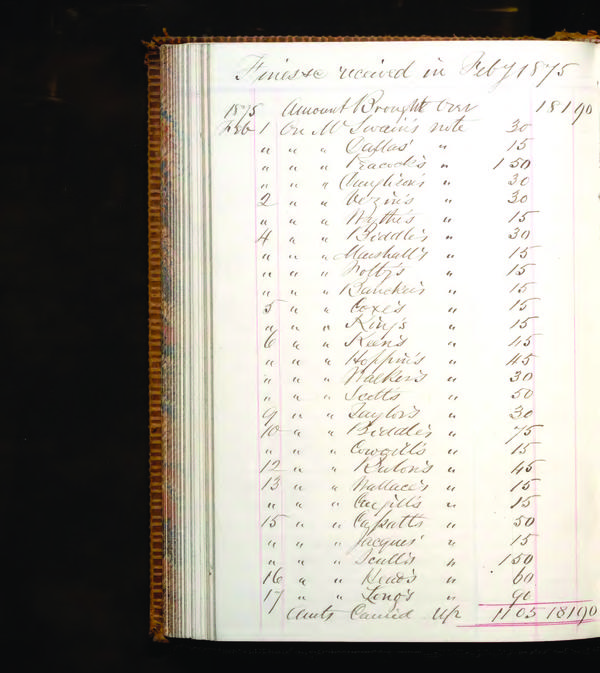 Fines &c received in Feby 1875
1875 Amount Brought Over 181 90
Feb 1 On Mr Swain's note 30
" " " Dallas' " 15
" " " Peacock's " 1 50
" " " " 30
2 " " Vezin's " 30
" " " Wythe's " 15
4 " " Biddle's " 30
" " " Marshall's " 15
" " " " 15
" " " Bancker's " 15
5 " " Coxe's " 15
" " " King's " 15
6 " " Keen's " 45
" " " Hoppin's " 45
" " " Walker's " 30
" " " Scott's " 50
9 " " Taylor's " 30
10 " " Biddle's " 75
" " " Cowgill's " 15
12 " " " 45
13 " " Wallace's " 15
" " " Cargill's " 15
15 " " Cassatt's " 50
" " " Jacques' " 15
" " " Scull's " 1 50
16 " " " 60
17 " " Long's " 90
Amts Carried Up 11 05 181 90